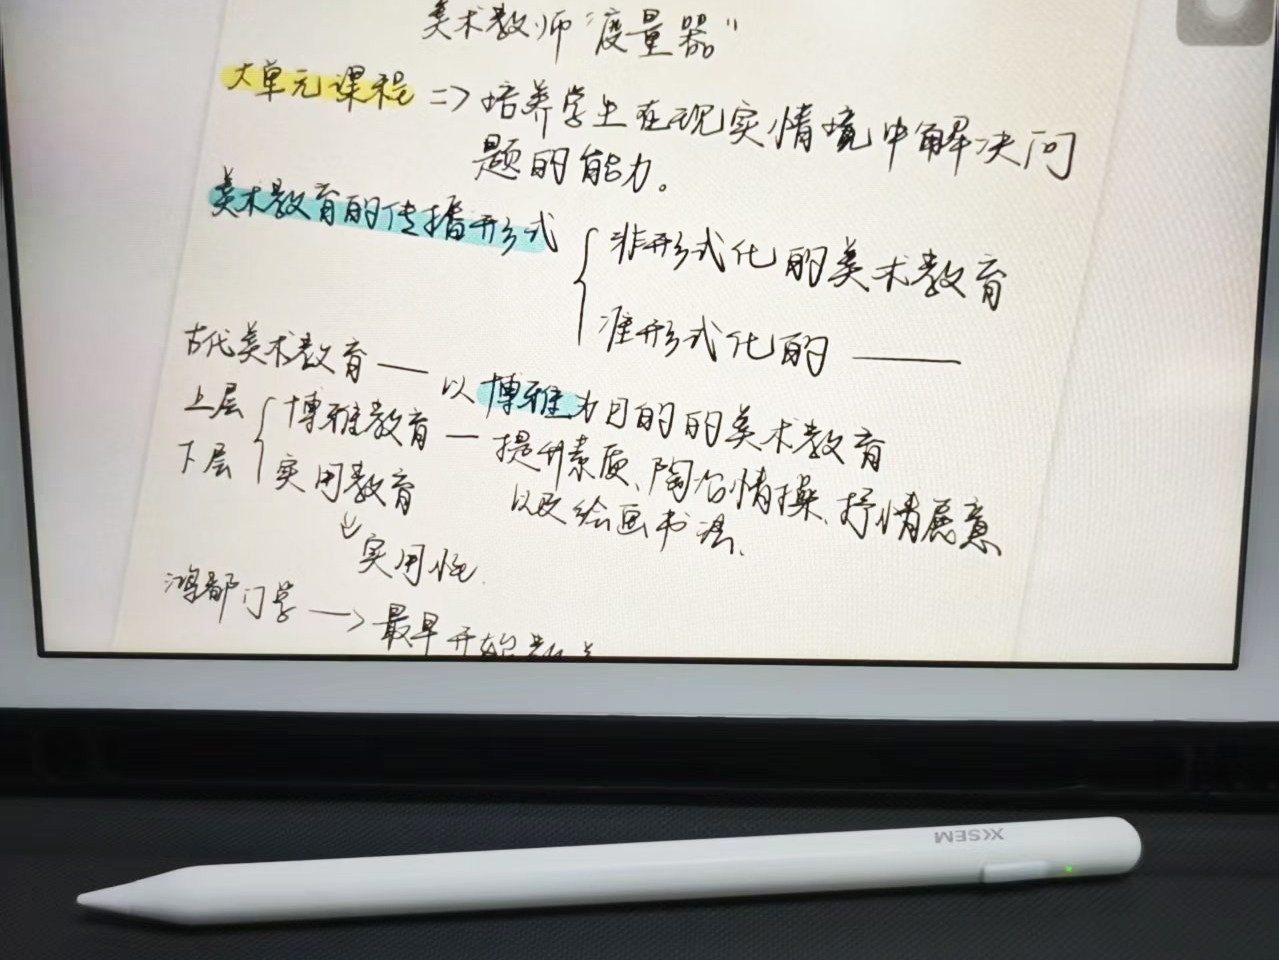 美术教师"度量器"
大单元课程 => 培养学生在现实情境中解决问
题的能力。
美术教育的传播形式
非形式化的美术教育
准形式化的 ——
古代美术教育 — 以博雅为目的的美术教育
上层 博雅教育 — 提升素质、陶冶情操、抒情愿意
下层 实用教育 以及绘画书法、
实用性.
鸿都门学 —> 最早开始
XKSEM